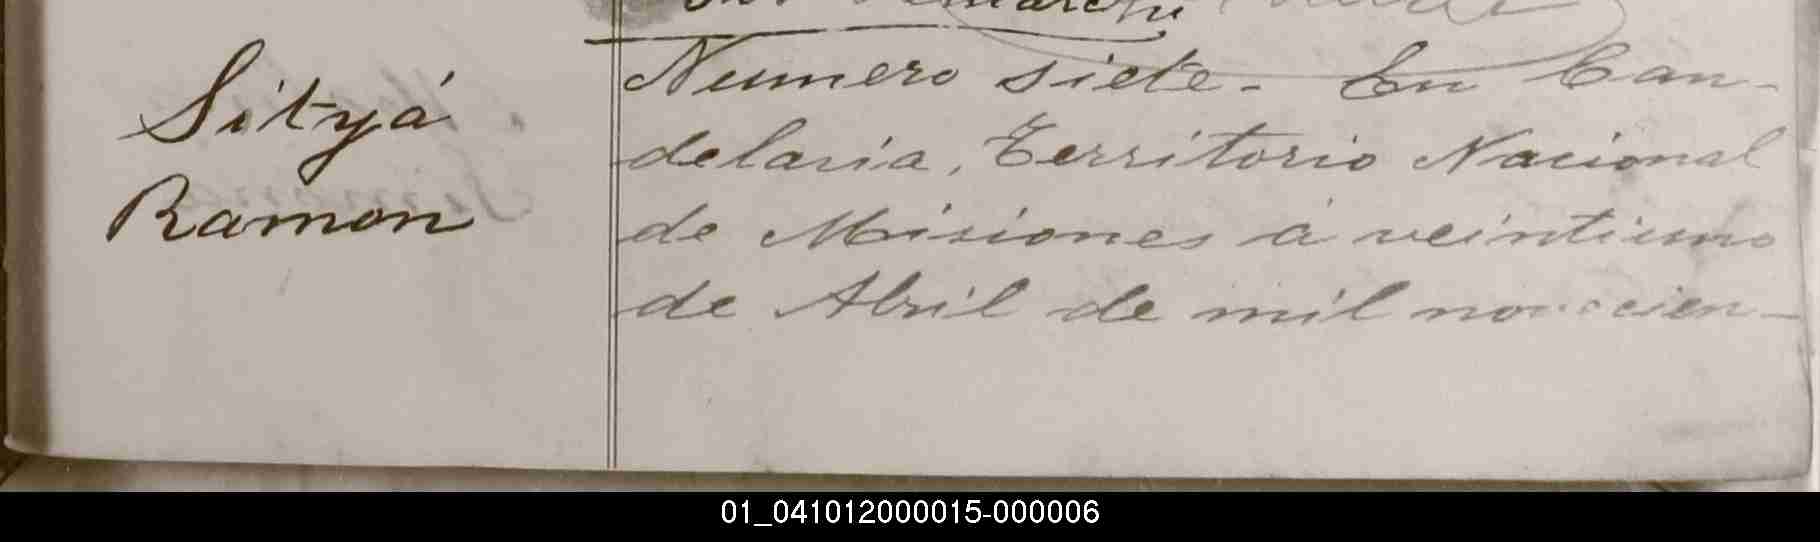 Sityá
Ramon
Numero siete. En Can-
delaria, Territorio Nacional
de Misiones á veintiuno
de Abril de mil novecien-
01_041012000015-000006